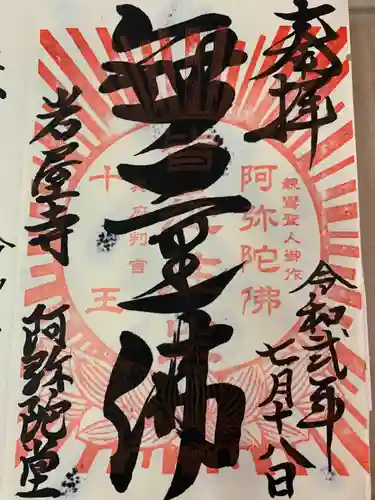 奉拝
令和弐年
七月十八日
無量佛
岩屋寺
阿弥陀堂
親鸞聖人御作
阿弥陀佛
十王